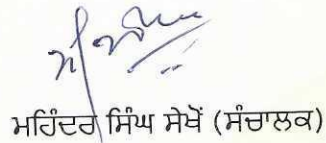 ਮਹਿੰਦਰ ਸਿੰਘ ਸੇਖੋਂ (ਸੰਚਾਲਕ)